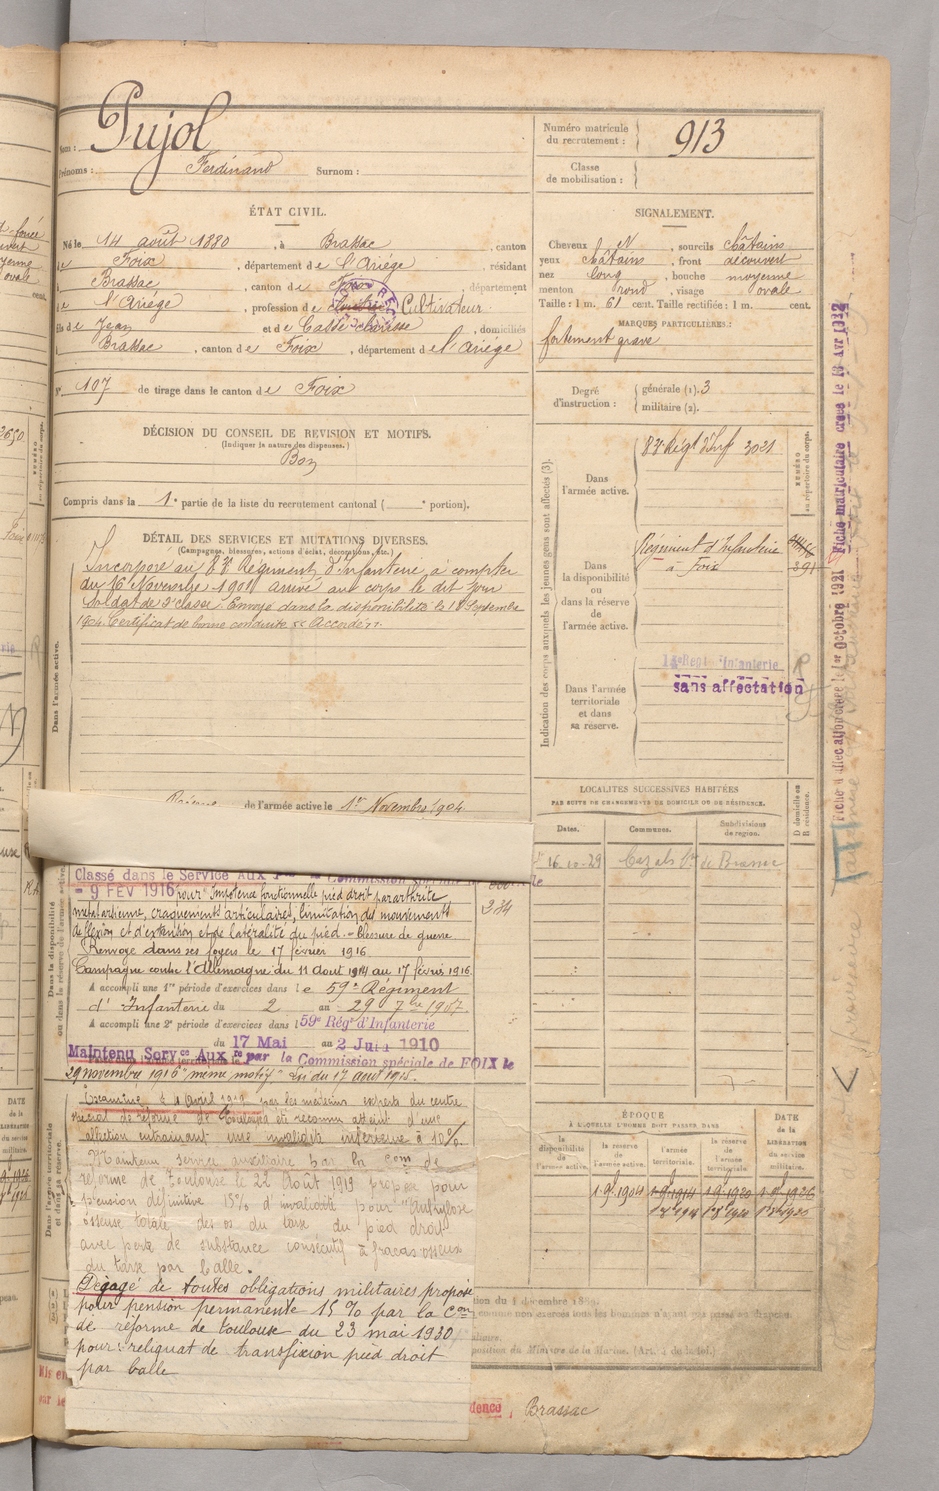 Nom : Pujol
Prénoms : Ferdinand Surnom :
Numéro matricule du recrutement : 913
Classe de mobilisation :
ÉTAT CIVIL.
Né le 14 août 1880, à Brassac, canton
de Foix, département de l'Ariège, résidant
à Brassac, canton de Foix, département
de l'Ariège, profession de Cultivateur
fils de Jean et de Casse Clarisse, domiciliés
à Brassac, canton de Foix, département de l'Ariège
N° 107 de tirage dans le canton de Foix
SIGNALEMENT.
Cheveux N, sourcils châtains
yeux châtains, front découvert
nez long, bouche moyenne
menton rond, visage ovale
Taille : 1 m. 61 cent. Taille rectifiée : 1 m. cent.
MARQUES PARTICULIÈRES :
fortement gravé
Degré d'instruction : générale (1). 3
militaire (2).
DÉCISION DU CONSEIL DE REVISION ET MOTIFS.
(Indiquer la nature des dispenses.)
Bon
Compris dans la 1e partie de la liste du recrutement cantonal ( e portion).
DÉTAIL DES SERVICES ET MUTATIONS DIVERSES.
(Campagnes, blessures, actions d'éclat, décorations, etc.)
Incorporé au 83e Régiment d'Infanterie à compter
du 16 Novembre 1901 arrivé au corps le dit jour
soldat de 2e classe. Envoyé dans la disponibilité le 18 Septembre
1904. Certificat de bonne conduite "Accordé".
Dans l'armée active.
de l'armée active le 1er Novembre 1904
Indication des corps auxquels les jeunes gens sont affectés (3).
NUMÉRO au répertoire du corps.
Dans l'armée active.
83e Régt d'Inf 3021
Dans la disponibilité ou dans la réserve de l'armée active.
Régiment d'Infanterie
à Foix 391
Dans l'armée territoriale et dans sa réserve.
Regt Infanterie
sans affectation
Fiche d'affectation créée le 1er Octobre 1921 Fiche matriculaire créée le 13 Avr 1912
LOCALITÉS SUCCESSIVES HABITÉES
PAR SUITE DE CHANGEMENTS DE DOMICILE OU DE RÉSIDENCE.
Dates. Communes. Subdivisions de région. D domicile ou R résidence.
16.10.29 Cazals de Brassac
Classé dans le Service Aux
- 9 FEV 1916 pour "Impotence fonctionnelle pied droit par arthrite
métatarsienne, craquements articulaires, limitation des mouvements
de flexion et d'extension et de latéralité du pied. - Blessure de guerre.
Renvoyé dans ses foyers le 17 février 1916.
Campagne contre l'Allemagne du 11 Août 1914 au 17 février 1916.
A accompli une 1re période d'exercices dans le 59e Régiment
d'Infanterie du 2 au 29 7bre 1907
A accompli une 2e période d'exercices dans le 59e Régt d'Infanterie
du 17 Mai au 2 Juin 1910
Maintenu Servce Auxre par la Commission spéciale de FOIX le
29 novembre 1916 "même motif" Loi du 17 août 1915.
Examiné le 4 avril par les médecins experts du centre
spécial de réforme de Toulouse a été reconnu atteint d'une
affection entrainant une invalidité inférieure à 10%.
Maintenu service auxiliaire par la com de
réforme de Toulouse le 22 Août 1919 proposé pour
pension définitive 15% d'invalidité pour "Ankylose
osseuse totale des os du tarse du pied droit
avec perte de substance consécutif à fracas osseux
du tarse par balle.
Dégagé de toutes obligations militaires proposé
pour pension permanente 15% par la Con
de réforme de toulouse du 23 mai 1930
pour : reliquat de transfixion pied droit
par balle
ÉPOQUE
À LAQUELLE L'HOMME DOIT PASSER DANS
la disponibilité de l'armée active. la réserve de l'armée active. l'armée territoriale. la réserve de l'armée territoriale. DATE de la LIBÉRATION du service militaire.
1.9.1904 1.9.1914 1.9.1920 1.9.1926
Brassac